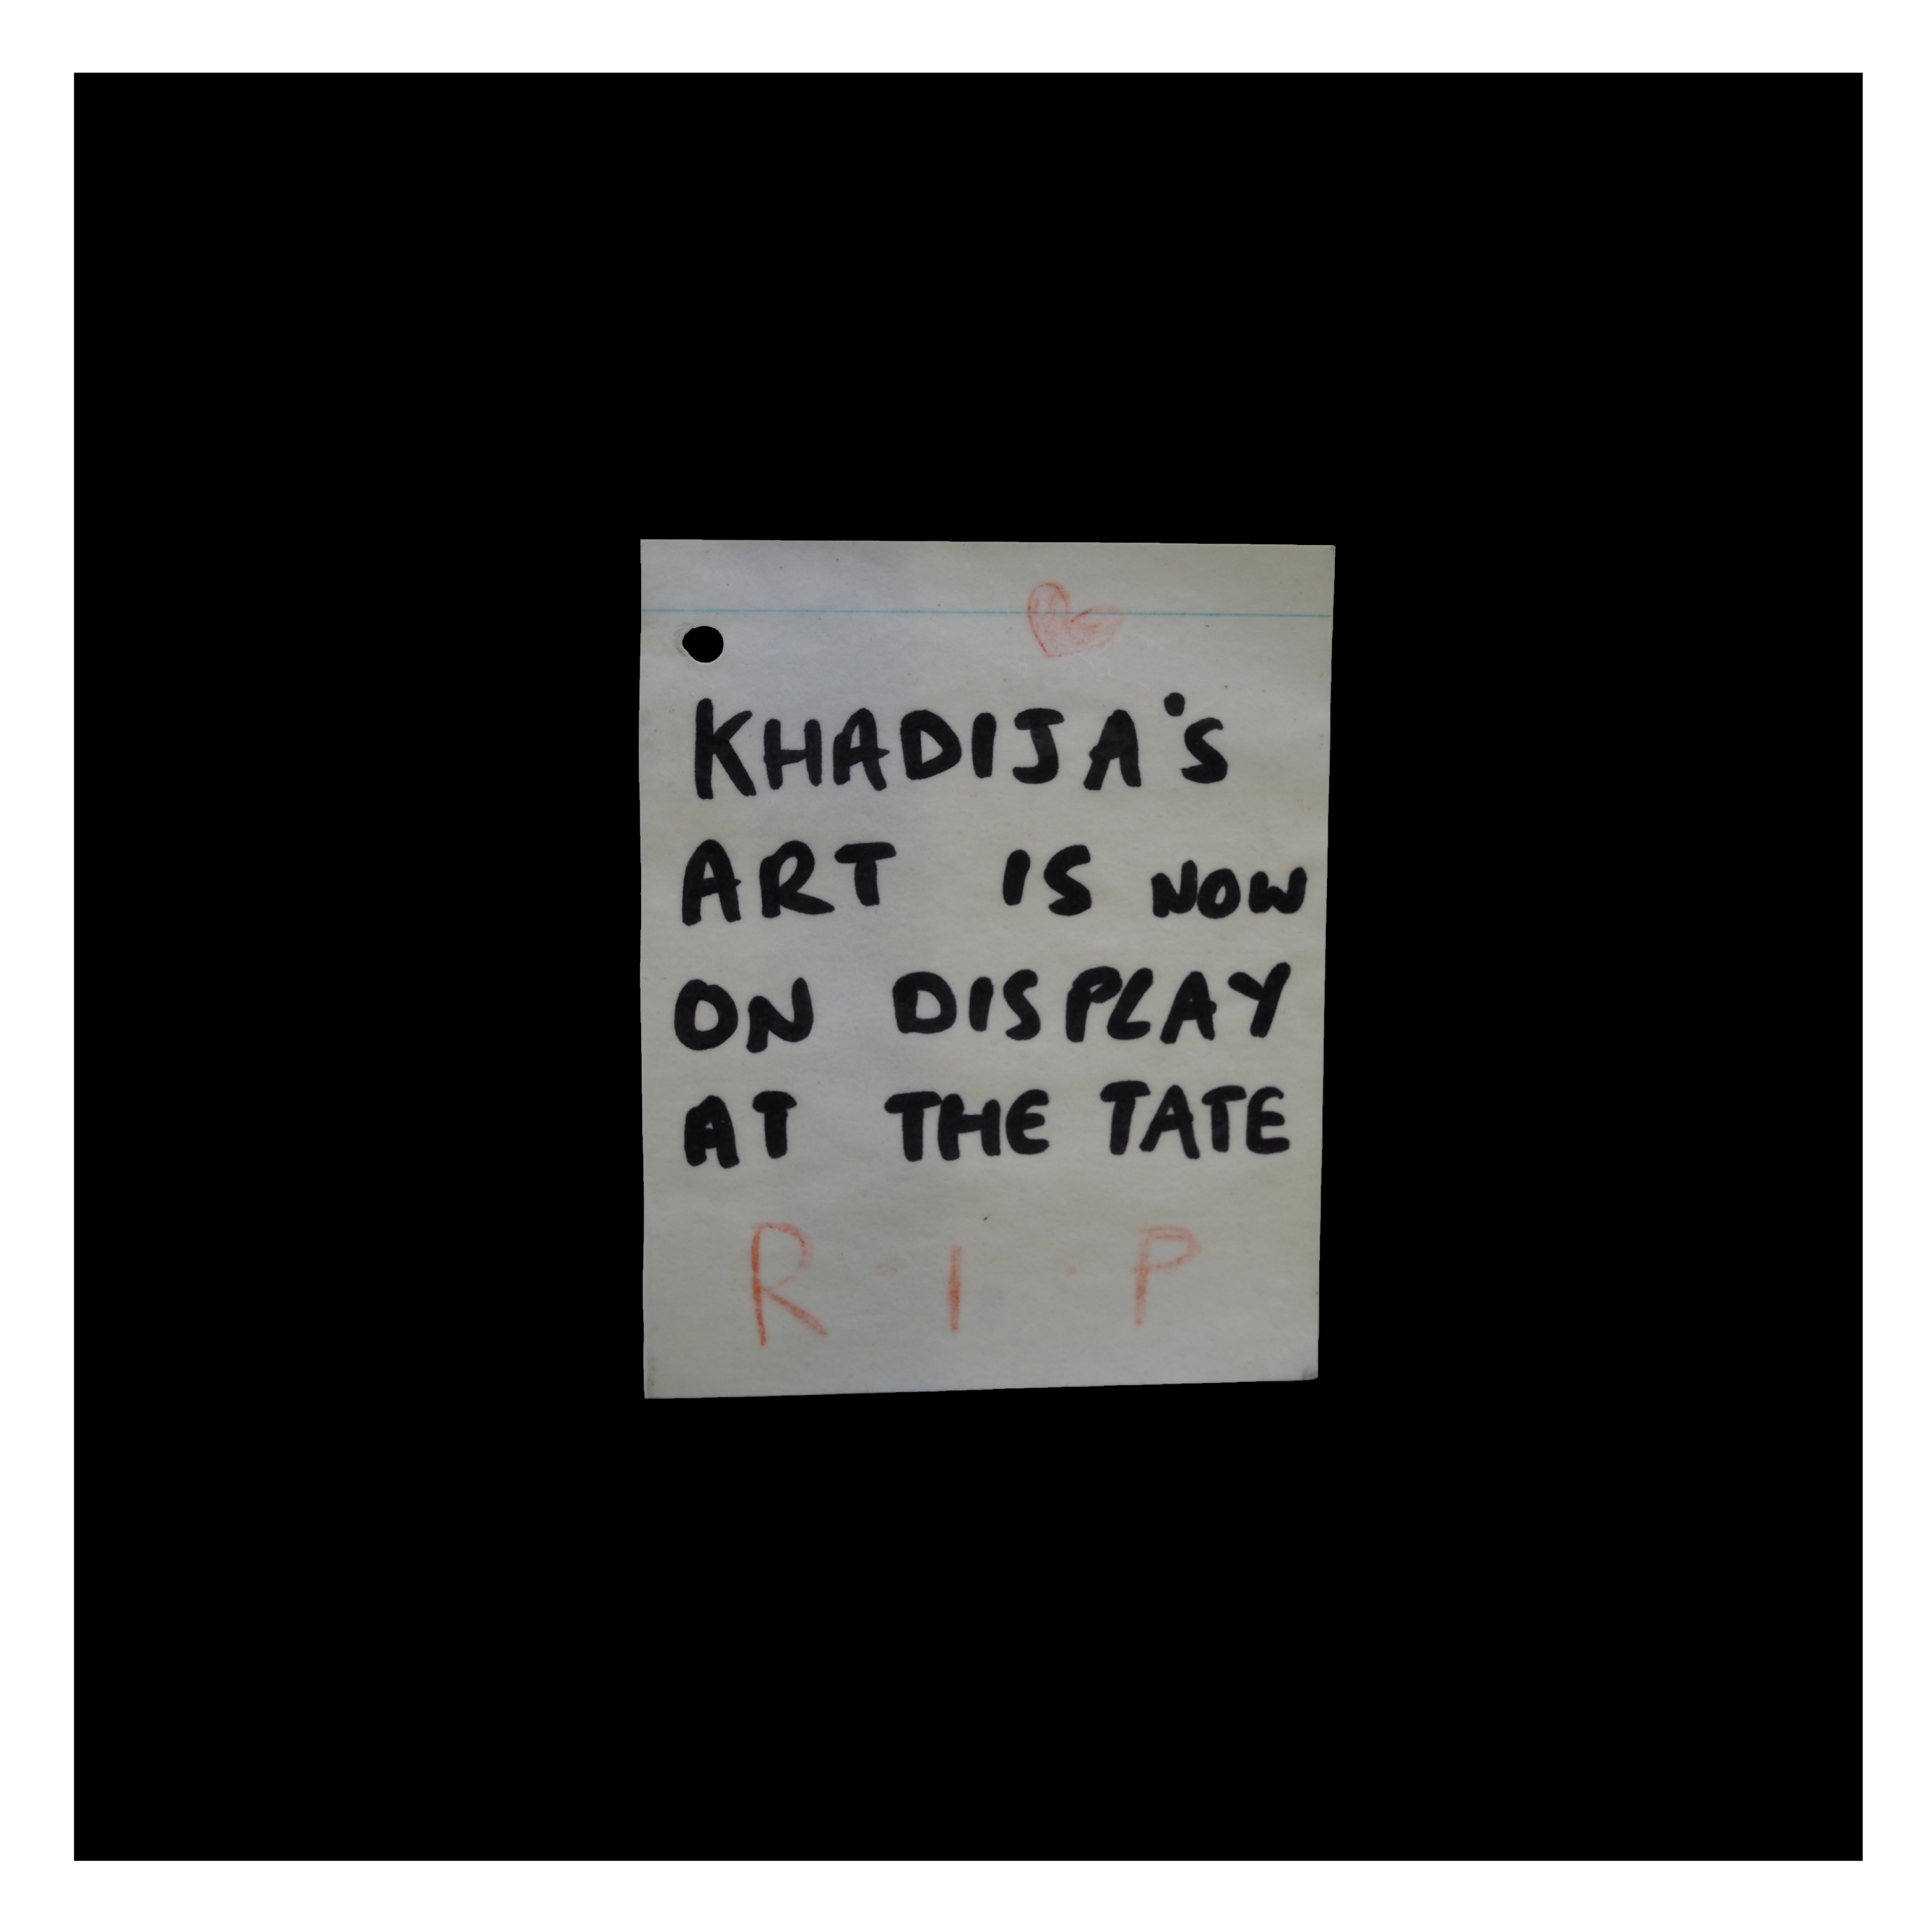 KHADIJA'S
ART IS NOW
ON DISPLAY
AT THE TATE
R·I·P